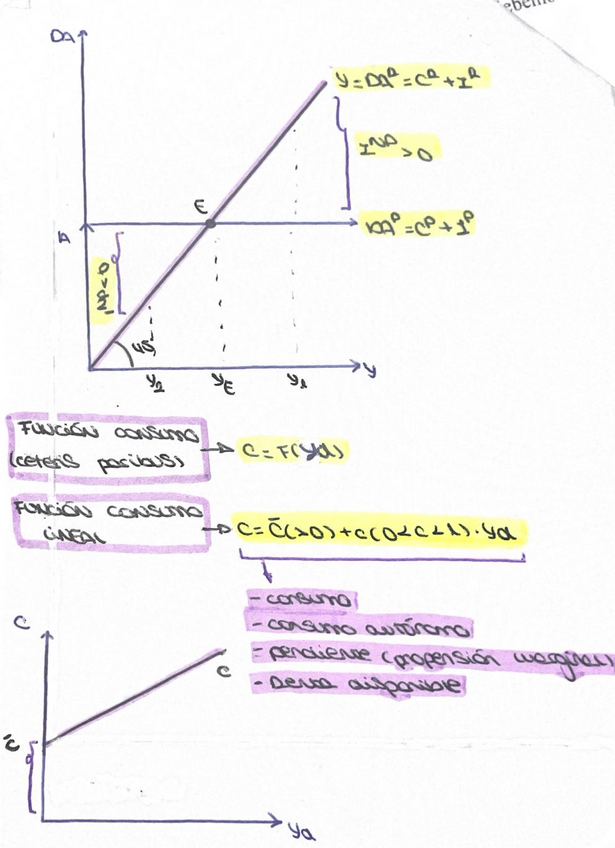 ebeme
DA
Y=DAᴿ=Cᴿ+Iᴿ
Iᴺᴰ>0
E
DAᴾ=Cᴾ+Iᴾ
A
45
Y₂
Yᴇ
Y₁
Y
FUNCIÓN CONSUMO
(ceteris paribus)
C=F(Yd)
FUNCIÓN CONSUMO
LINEAL
C=C̄(>0)+c(0<c<1)·Yd
- consumo
- consumo autónomo
- pendiente (propensión marginal)
- Denta disponible
C
C
C̄
Yd